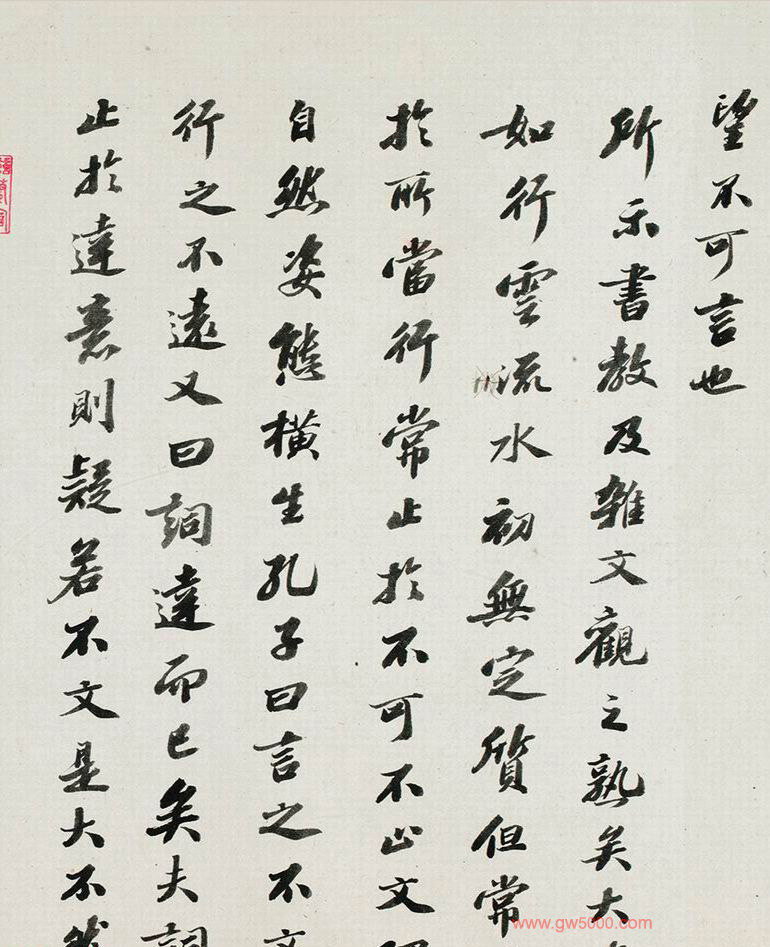 望不可言也
所示書教及雜文觀之熟矣大
如行雲流水初無定質但常
於所當行常止於不可不止文
自然姿態橫生孔子曰言之不文
行之不遠又曰詞達而已矣夫詞
止於達意則疑若不文是大不然
www.gw5000.com